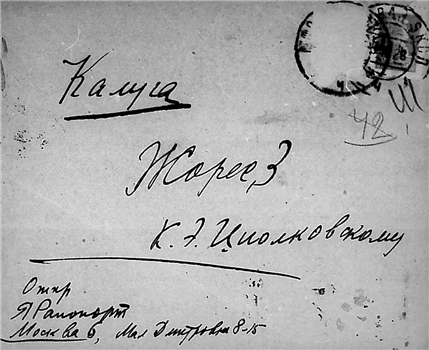 42
Калуга
Жорес, 3
К. Э. Циолковскому
Отпр
Я Рапопорт
Москва 6, Мал Дмитровка 8-15